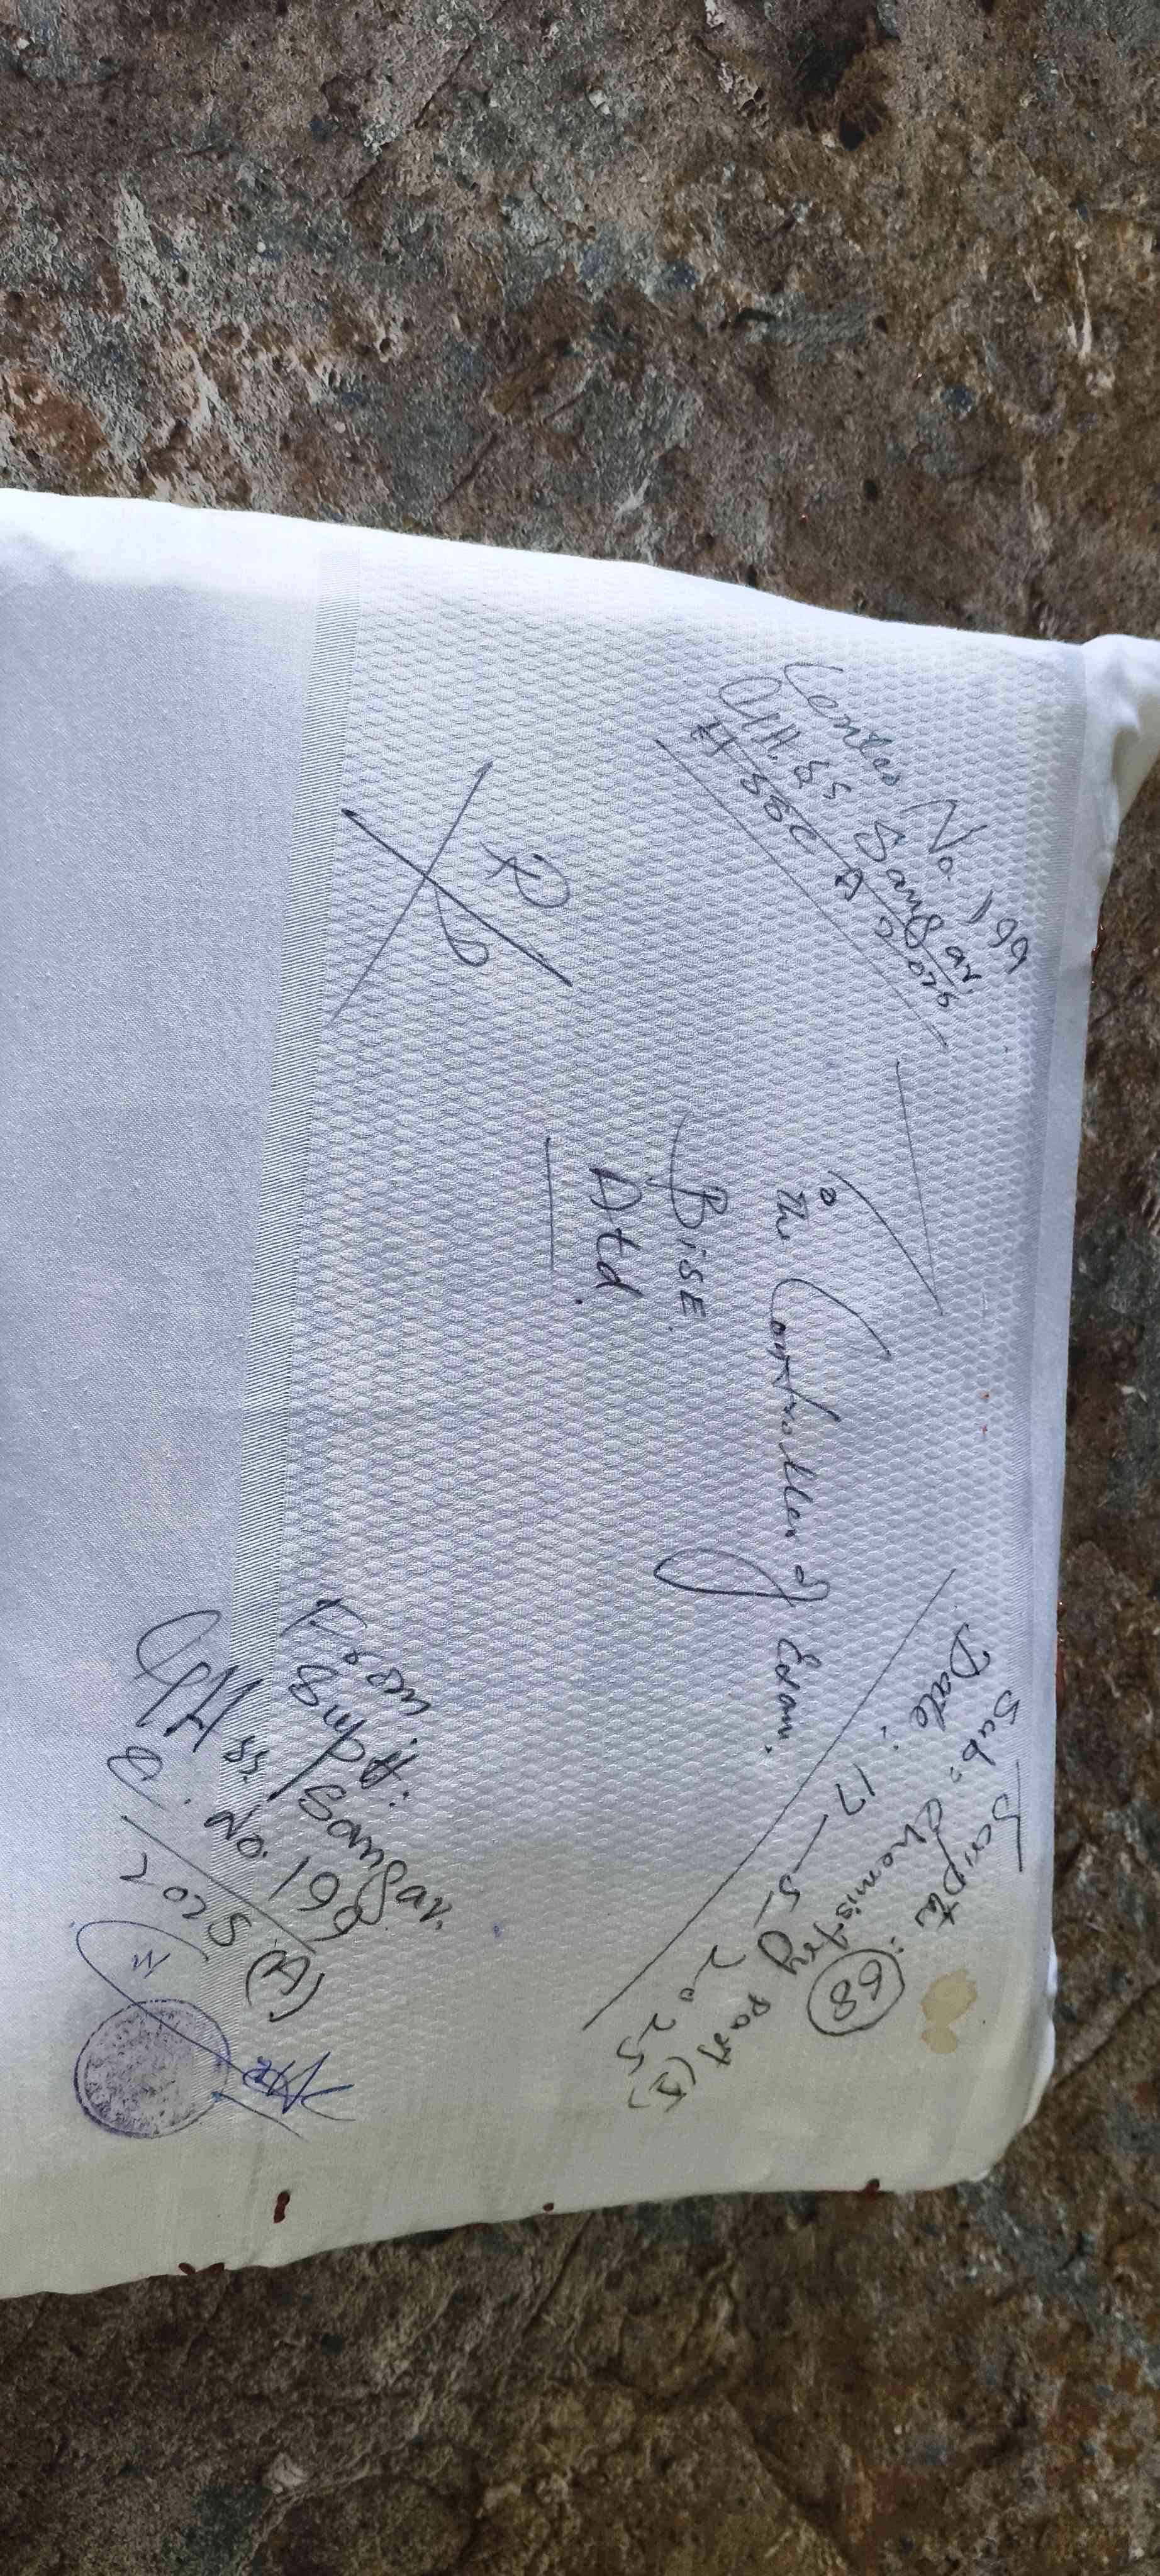 Centre No. 199
GHSS Sangar
HSSC A 2025
Scripts: 68
Sub: Chemistry Part (I)
Date: 17-5-2025
To
The Controller of Exam.
BISE
Atd.
R
From
Supdt:
GHSS Sangar
No. 199 (A)